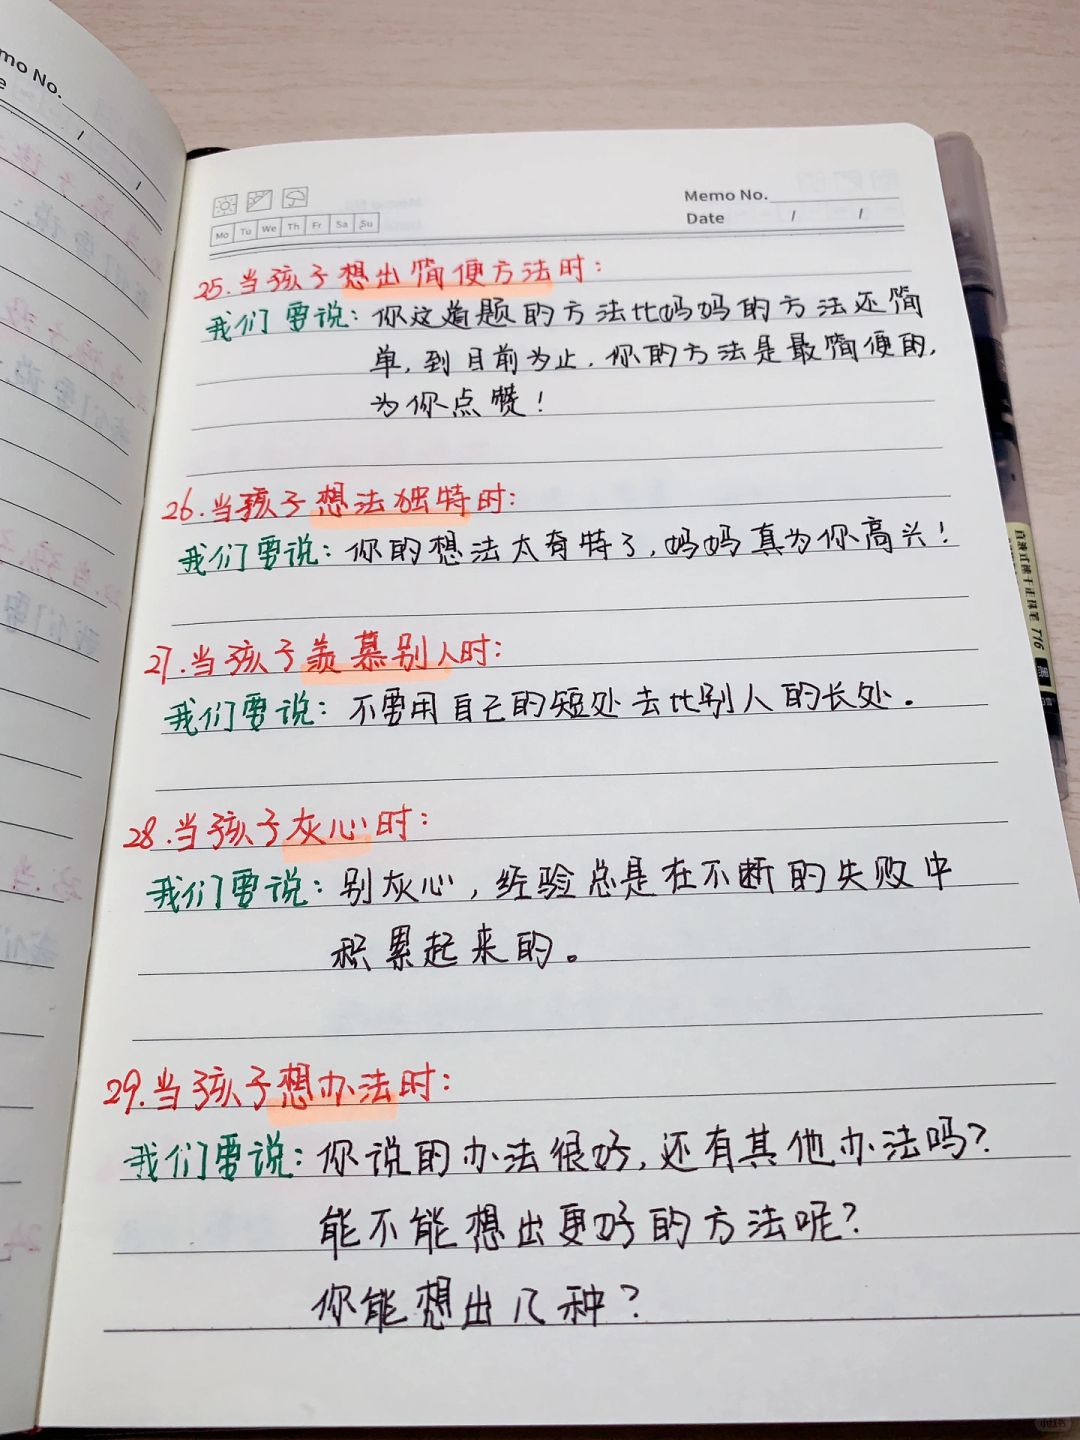 Memo No.
Date / /
Mo Tu We Th Fr Sa Su
25.当孩子想出简便方法时:
我们要说:你这道题的方法比妈妈的方法还简
单,到目前为止,你的方法是最简便的,
为你点赞!
26.当孩子想法独特时:
我们要说:你的想法太有特了,妈妈真为你高兴!
27.当孩子羡慕别人时:
我们要说:不要用自己的短处去比别人的长处。
28.当孩子灰心时:
我们要说:别灰心,经验总是在不断的失败中
积累起来的。
29.当孩子想办法时:
我们要说:你说的办法很好,还有其他办法吗?
能不能想出更好的方法呢?
你能想出几种?